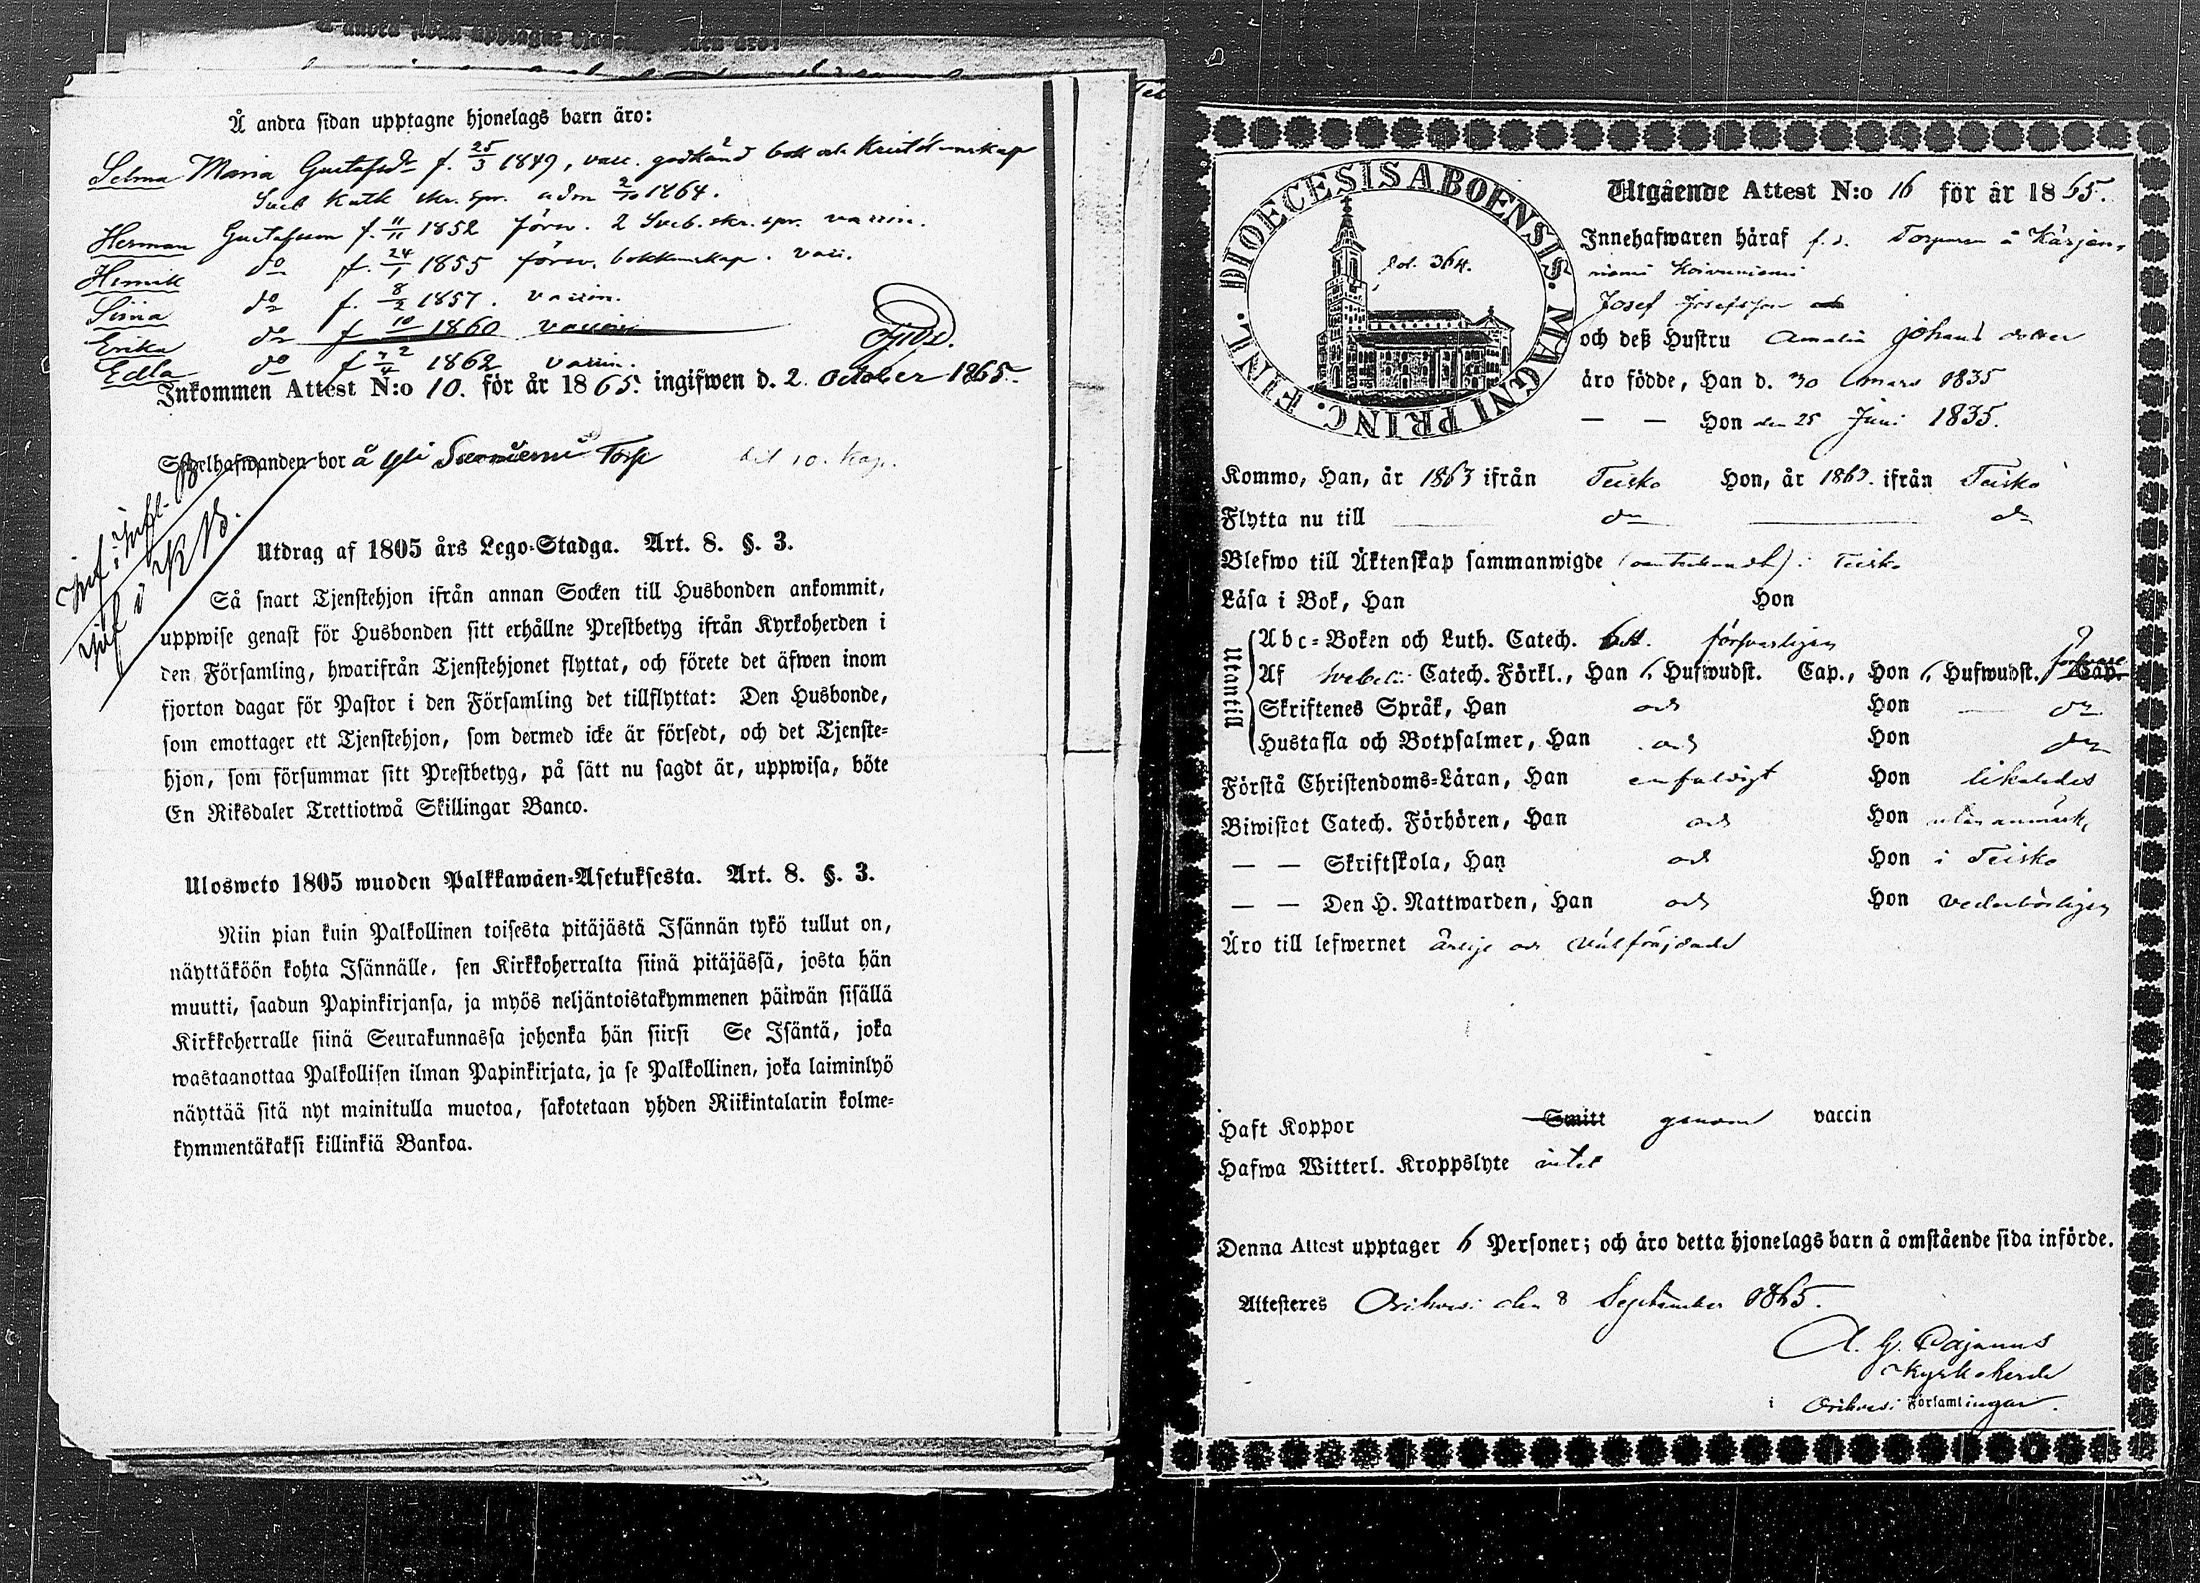 Å andra sidan upptagne hjonelags barn äro:
Selma Maria Gustafsdr f. 25/3 1849, vacc. godkänd bok och Kristd.nskap
Sveb Kath skr. spr. adm 2/10 1864.
Herman Gustafsson f. 11/11 1852 förv. 2 Sveb. skr. spr. vaccin.
Henrik do f. 24/1 1855 förv. bokkunskap. vacc.
Siina do f. 8/2 1857. vaccin.
Erika do f 10 1860 vaccin
Edla do f 1862 vaccin.
Inkommen Attest N:o 10. för år 1865. ingifwen d. 2. October 1865.
Skjelhafwanden bor å Yli Torp
Utdrag af 1805 års Lego-Stadga. Art. 8. §. 3.
Så snart Tjenstehjon ifrån annan Socken till Husbonden ankommit,
uppwise genast för Husbonden sitt erhållne Prestbetyg ifrån Kyrkoherden i
den Församling, hwarifrån Tjenstehjonet flyttat, och förete det äfwen inom
fjorton dagar för Pastor i den Församling det tillflyttat: Den Husbonde,
som emottager ett Tjenstehjon, som dermed icke är försedt, och det Tjenste-
hjon, som försummar sitt Prestbetyg, på sätt nu sagdt är, uppwisa, böte
En Riksdaler Trettiotwå Skillingar Banco.
Uloswcto 1805 wuoden Palkkawäen-Asetuksesta. Art. 8. §. 3.
Niin pian kuin Palkollinen toisesta pitäjästä Isännän tykö tullut on,
näyttäköön kohta Isännälle, sen Kirkkoherralta siinä pitäjässä, josta hän
muutti, saadun Papinkirjansa, ja myös neljäntoistakymmenen päiwän sisällä
Kirkkoherralle siinä Seurakunnassa johonka hän siirsi Se Isäntä, joka
wastaanottaa Palkollisen ilman Papinkirjata, ja se Palkollinen, joka laiminlyö
näyttää sitä nyt mainitulla muotoa, sakotetaan yhden Riikintalarin kolme-
kymmentäkaksi killinkiä Bankoa.
DIOECESIS ABOENSIS. MAGNI PRINC. FINL.
fol. 364.
Utgående Attest N:o 16 för år 1865.
Innehafwaren häraf f. d. Torparen å Kärjen-
niemi Koivuniemi
Josef Josefsson
och deß Hustru Amalia Johans dotter
äro födde, Han d. 30 Mars 1835
— — Hon den 25 Juni 1835.
Kommo, Han, år 1863 ifrån Teisko Hon, år 1863. ifrån Teisko
Flytta nu till do do
Blefwo till Äktenskap sammanwigde i Teisko
Läsa i Bok, Han Hon
Utantill
Abc-Boken och Luth. Catech. försvarligen
Af Svebelii Catech. Förkl., Han 6 Hufwudst. Cap., Hon 6 Hufwudst. Cap.
Skriftenes Språk, Han och Hon — do
Hustafla och Botpsalmer, Han och Hon do
Förstå Christendoms-Läran, Han enfaldigt Hon likaledes
Biwistat Catech. Förhören, Han och Hon utan anmärk,
— — Skriftskola, Han och Hon i Teisko
— — Den H. Nattwarden, Han och Hon vederbörligen
Äro till lefwernet ärlige och välfrejdade
Haft Koppor Smitt genom vaccin
Hafwa Witterl. Kroppslyte intet
Denna Attest upptager 6 Personer; och äro detta hjonelags barn å omstående sida införde.
Attesteres Orihvesi den 8 September 1865.
A. G. Pajanus
Kyrkoherde
i Orihvesi Församlingar.